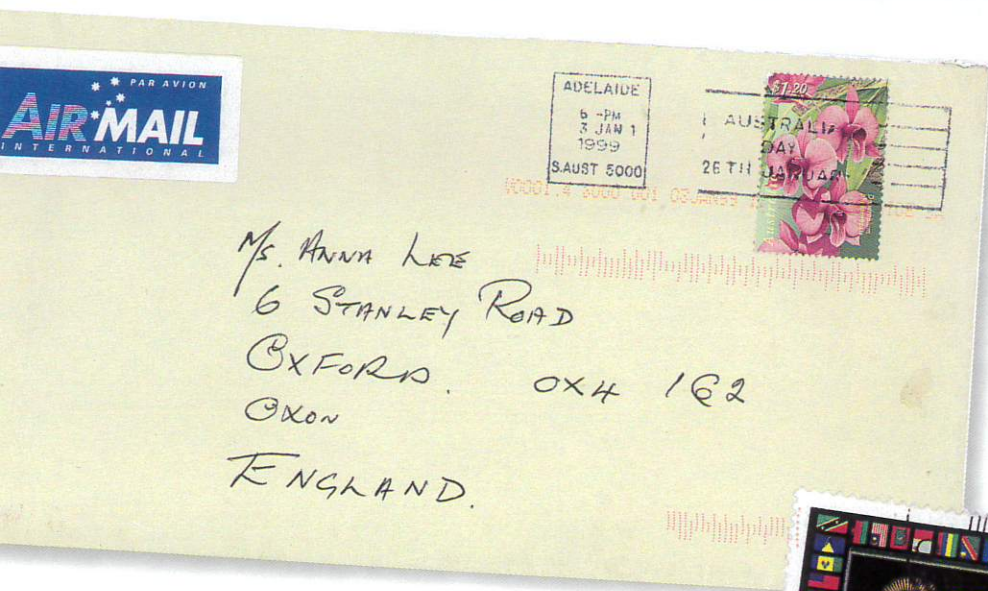 PAR AVION
AIR MAIL
INTERNATIONAL
ADELAIDE
6 -PM
3 JAN 1
1999
S.AUST 5000
$1.20
AUSTRALIA
DAY
26TH JANUARY
Ms. ANNA LEE
6 STANLEY ROAD
OXFORD. OX4 1Q2
OXON
ENGLAND.